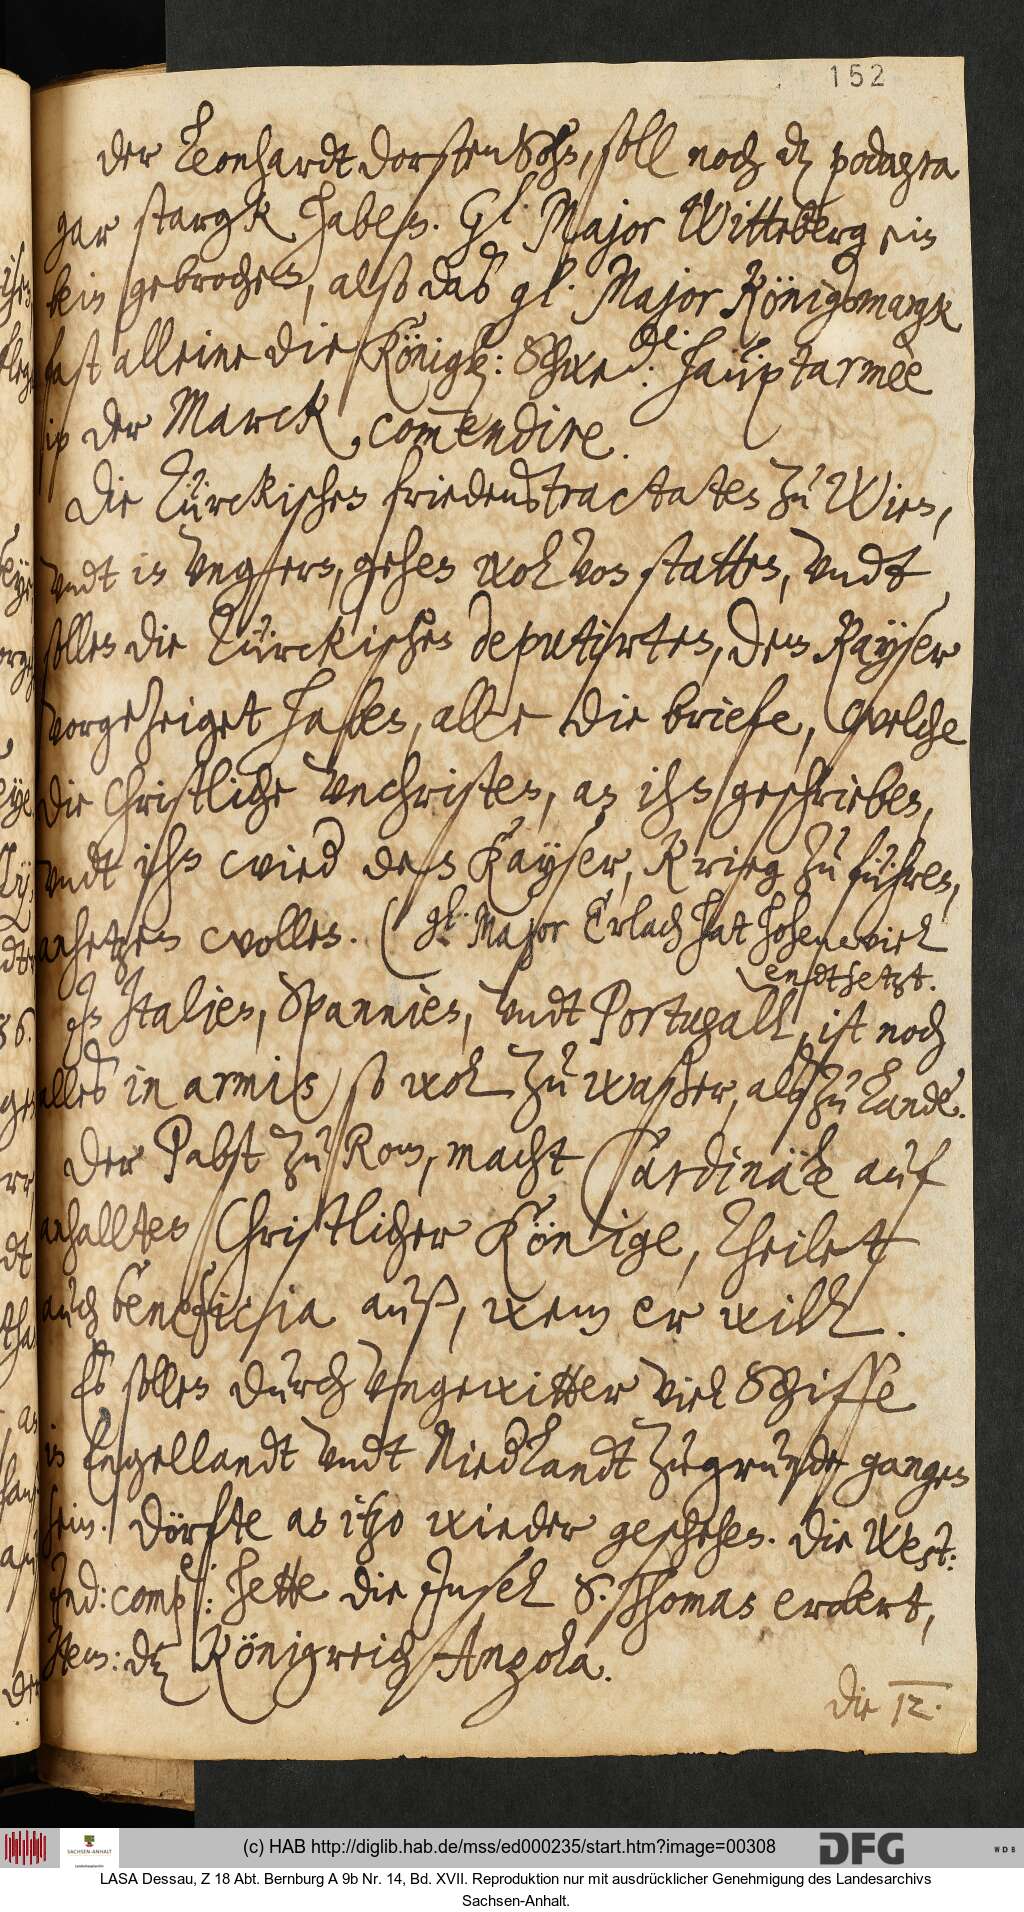 152
der Leonhardt DorstenSohn, soll noch dz podagra
gar stargk haben. Gl. Major Witteberg ein
bein gebrochen, also das gl. Major Königsmargk
fast alleine die Königl: Schwed.e: hauptarmèe
in der Marck, com̅endire.
Die Türckischen friedenstractaten zu Wien,
vndt in Vngern, gehen wol von statten, vndt
sollen die Türckischen deputirten, dem Kayser
vorgezeiget haben, alle die briefe, welche
die Christliche vnchristen, an ihn geschrieben,
vndt ihn wied den Kayser, Krieg zu führen,
anhetzen wollen. (gl. Major Erlach hat hohenwiel
endtsetzt.
In Italien, Spannien, vndt Portugall, ist noch
alles in armis so wol zu waßer, als zu Lande.
Der Pabst zu Rom, macht Cardinäle auf
anhallten Christlicher Könige, theilet
auch beneficia auß, wem er will.
Es sollen durch vngewitter viel Schiffe
in Engellandt vndt Niedlandt zugrunde gangen
sein. Dörfte an itzo wieder geschehen. Die West:
Ind: comp.e: hette die Insel S. Thomas erobert,
Item: dz Königreich Angola.
Die 12.
(c) HAB http://diglib.hab.de/mss/ed000235/start.htm?image=00308
SACHSEN-ANHALT
DFG
WDB
LASA Dessau, Z 18 Abt. Bernburg A 9b Nr. 14, Bd. XVII. Reproduktion nur mit ausdrücklicher Genehmigung des Landesarchivs
Sachsen-Anhalt.